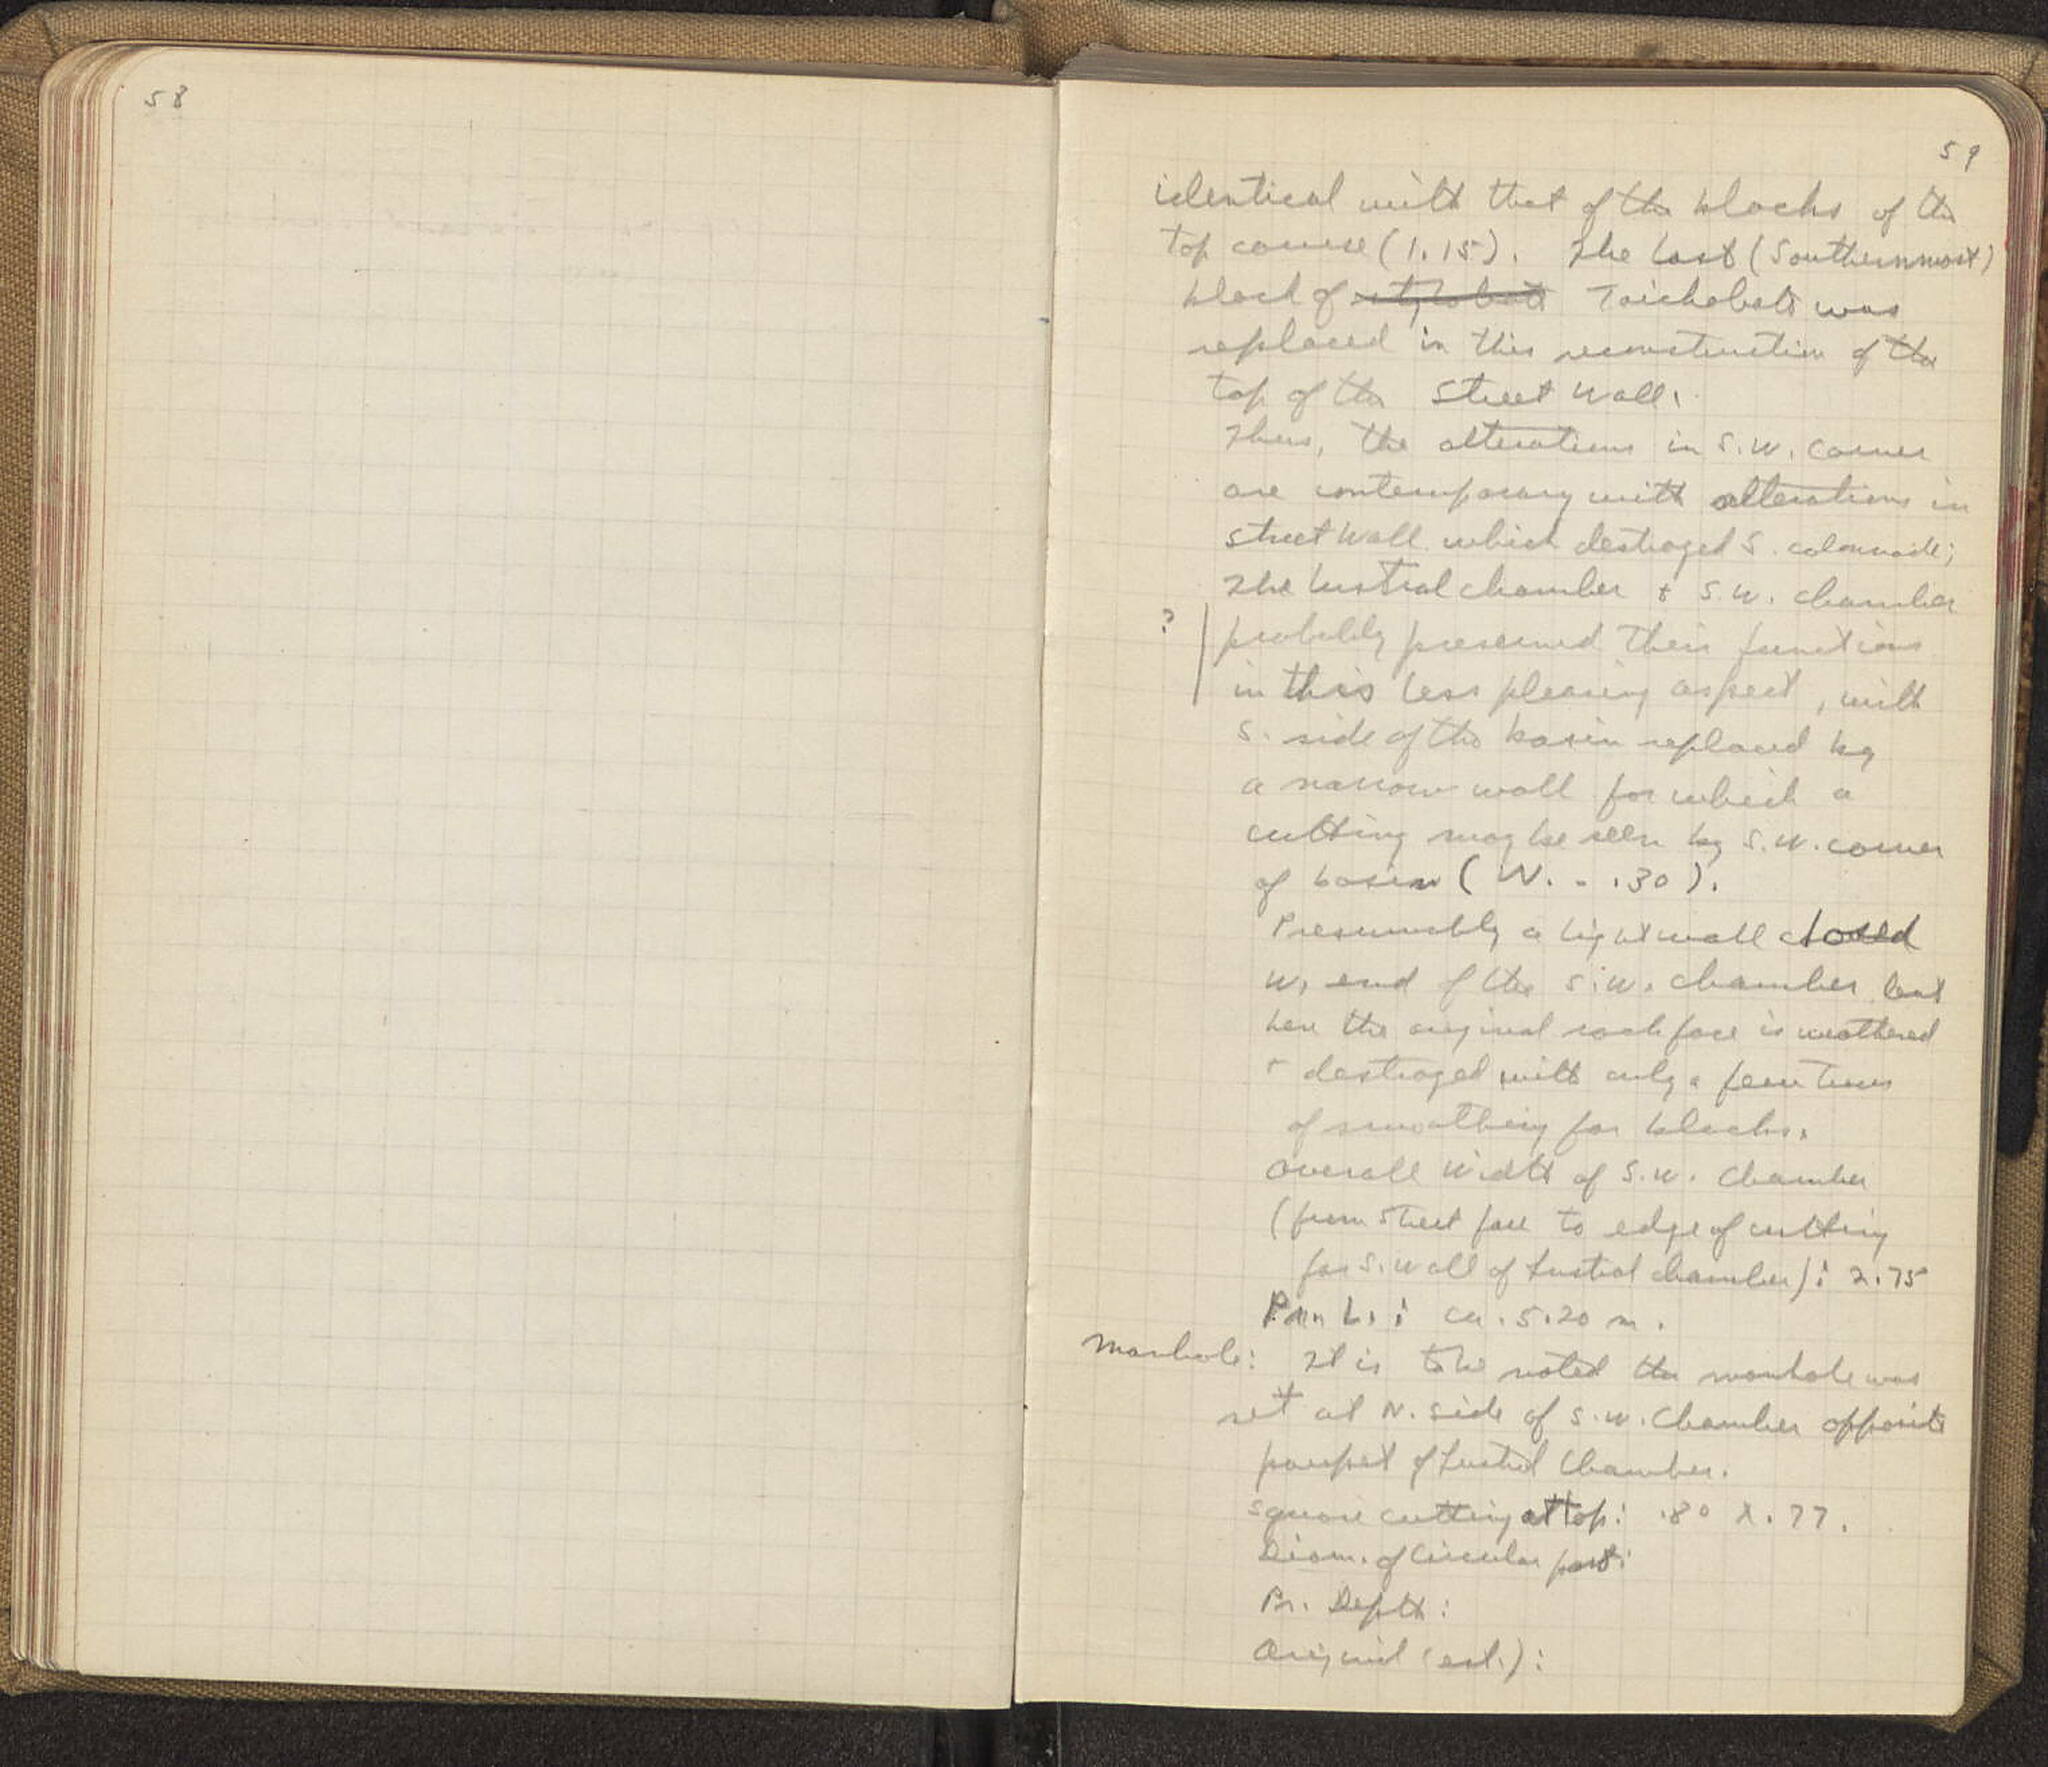 58
59
identical with that of the blocks of the
top course (1.15). The last (Southernmost)
block of stylobate Toichobate was
replaced in this reconstruction of the
top of the Street Wall.
Thus, the alterations in S.W. corner
are contemporary with alterations in
Street Wall which destroyed S. colonnade;
The Lustral chamber + S.W. chamber
? probably preserved their functions
in this less pleasing aspect, with
S. side of the basin replaced by
a narrow wall for which a
cutting may be seen by S.W. corner
of basin (W. - .30).
Presumably a light wall closed
W. end of the S.W. chamber but
here the original rock face is weathered
+ destroyed with only a few
of smoothing for blocks.
Overall Width of S.W. Chamber
(from Street face to edge of cutting
for S. wall of Lustral chamber): 2.75
L.: ca. 5.20 m.
Manhole: It is to be noted the manhole was
set at N. side of S.W. Chamber opposite
parapet of Lustral Chamber.
Square cutting at top: .80 x .77.
Diam. of Circular part:
Pr. Depth:
Original (est.):